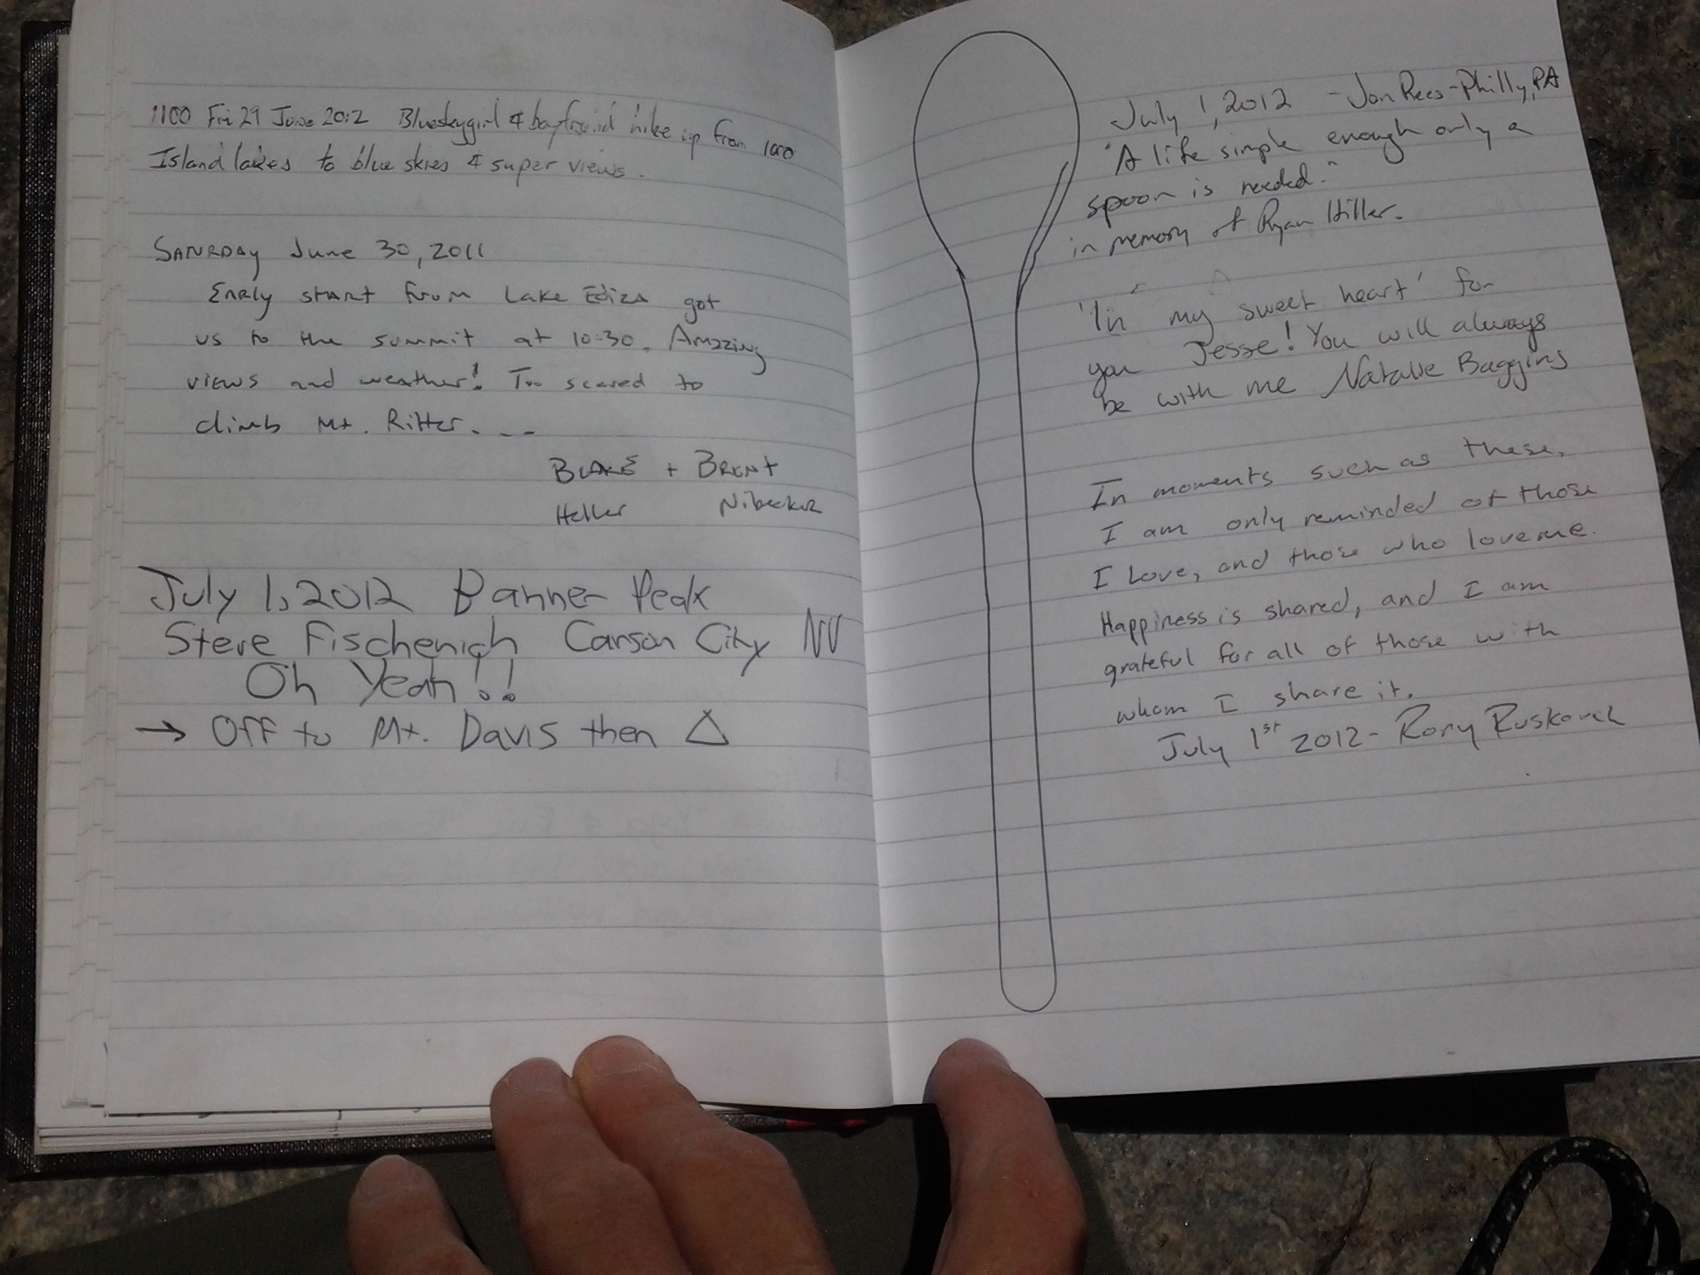 1100 Fri 29 June 2012 Blueskygirl & boyfriend hike up from 1000
Island lakes to blue skies & super views.
SATURDAY June 30, 2011
EARLY START FROM LAKE EDIZA got
us to the summit at 10:30. AMAZING
VIEWS and weather! Too scared to
climb Mt. Ritter. ...
BLAKE + BRENT
Heller
July 1, 2012 Banner Peak
Steve Fischenich Carson City NV
Oh Yeah!!
→ Off to Mt. Davis then △
July 1, 2012 - Jon Rees - Philly, PA
"A life simple enough only a
spoon is needed."
in memory of Ryan Hiller.
'In my sweet heart' for
you Jesse! You will always
be with me Natalie Baggins
In moments such as these,
I am only reminded of those
I Love, and those who love me.
Happiness is shared, and I am
grateful for all of those with
whom I share it.
July 1st 2012 - Rory